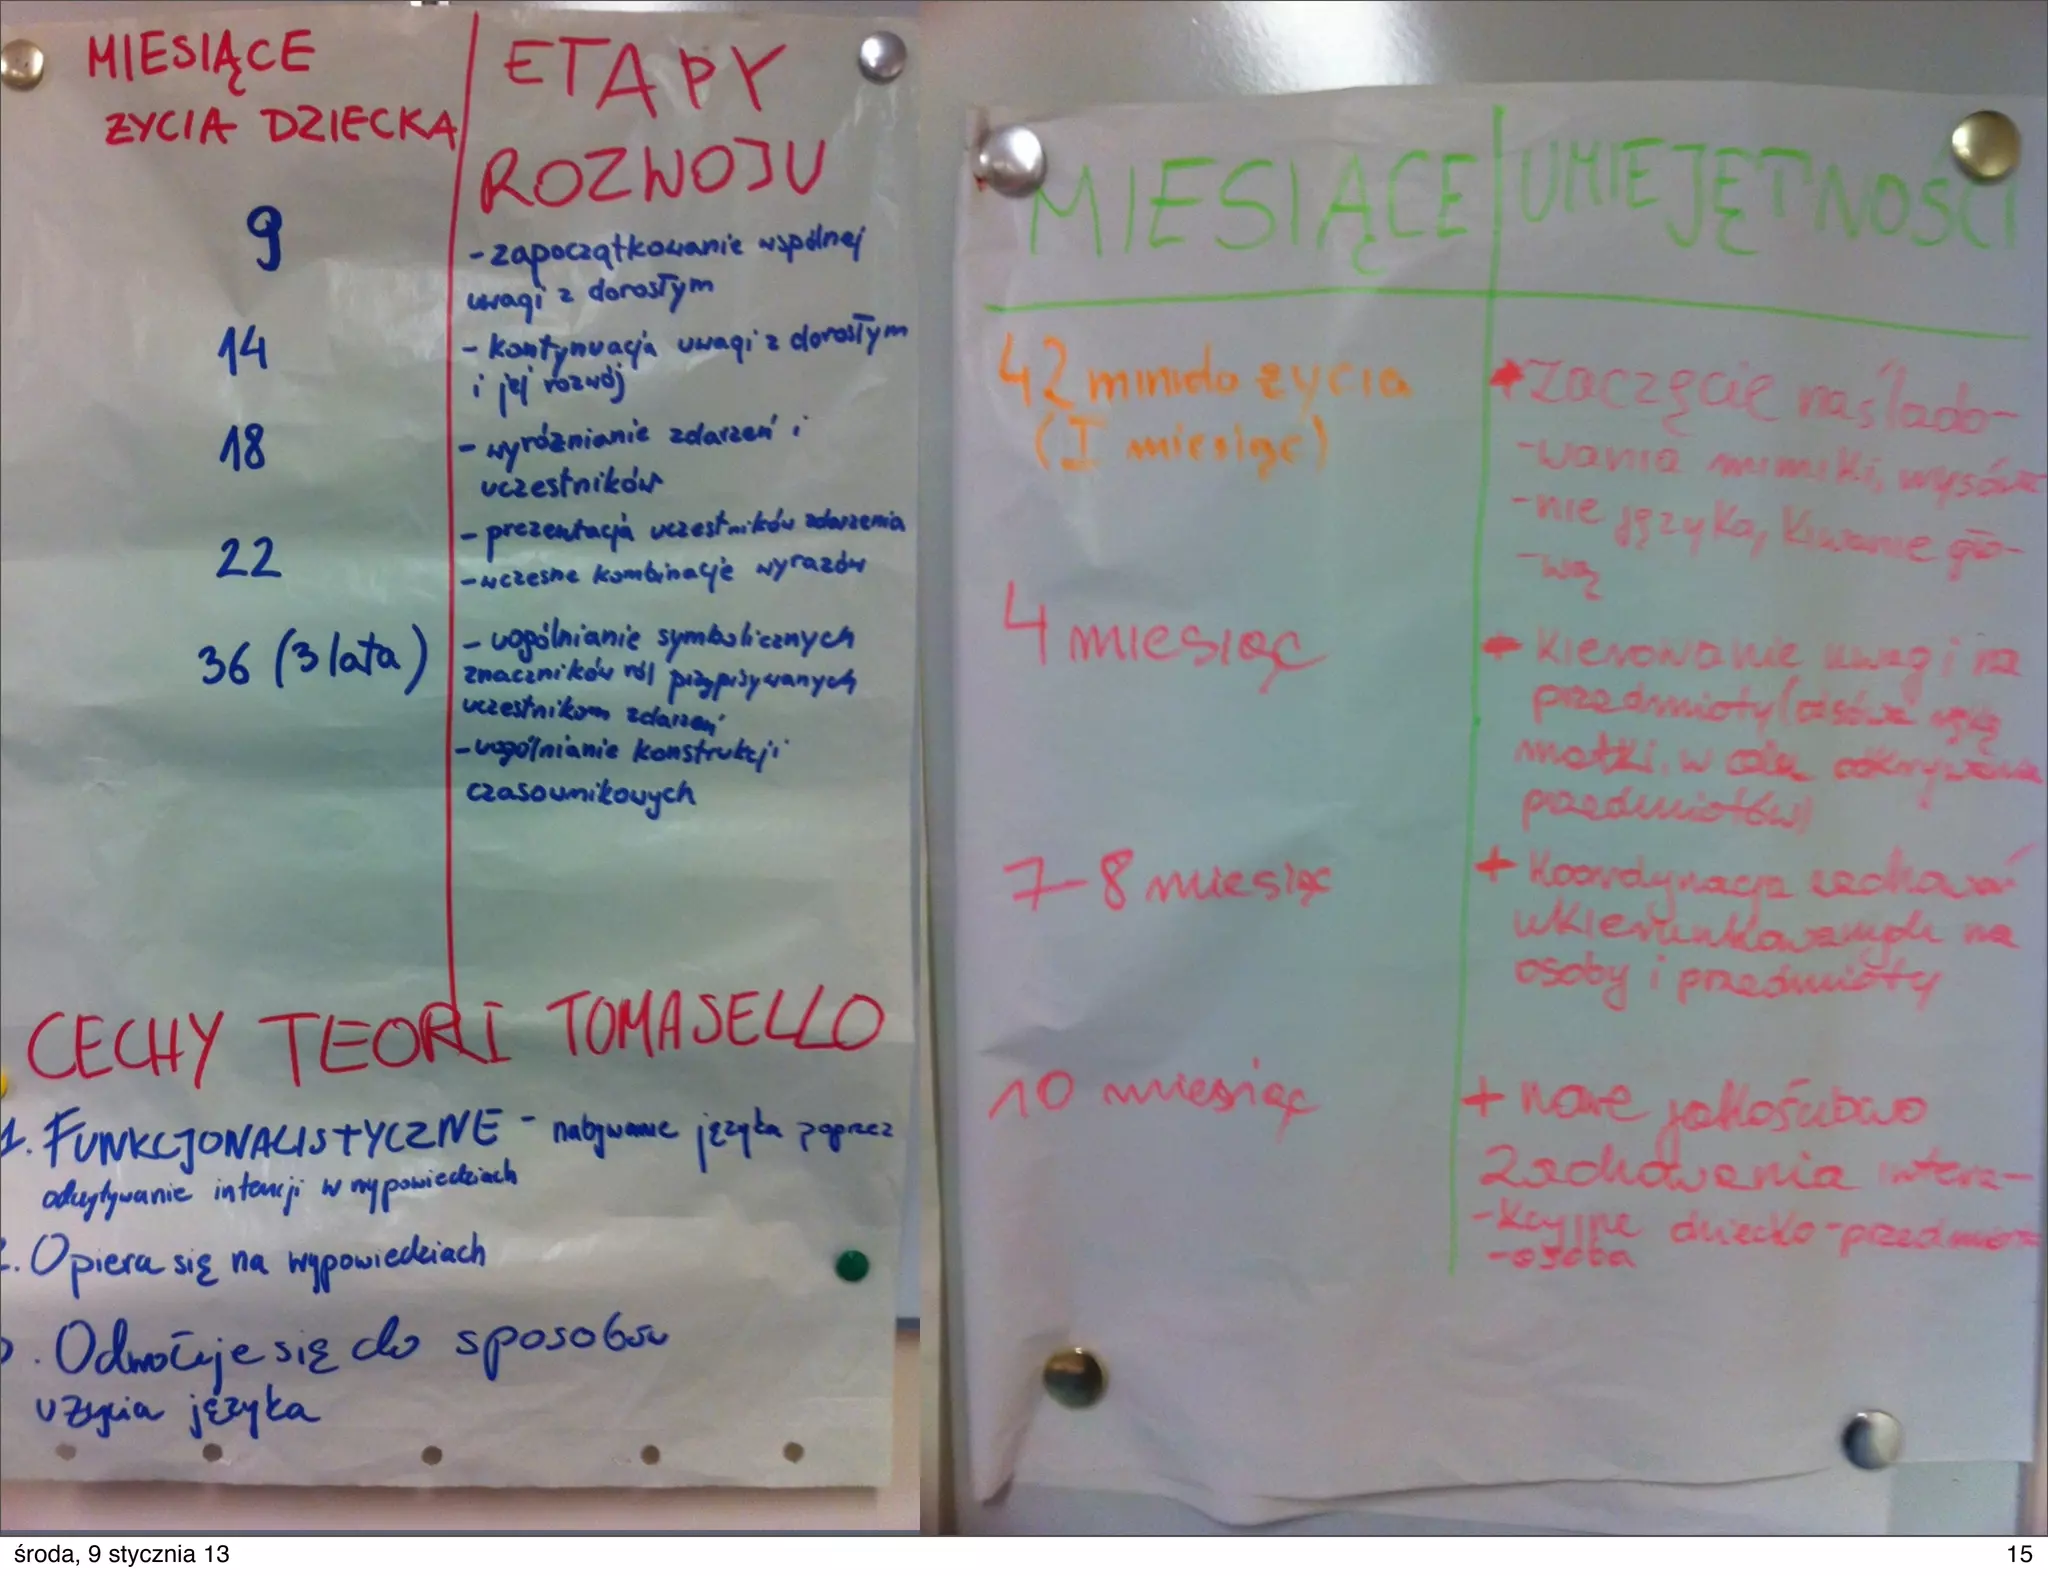 MIESIĄCE
ŻYCIA DZIECKA
ETAPY
ROZWOJU
9
- zapoczątkowanie wspólnej
uwagi z dorosłym
14
- kontynuacja uwagi z dorosłym
i jej rozwój
18
- wyróżnianie zdarzeń i
uczestników
22
- prezentacja uczestników zdarzenia
- wczesne kombinacje wyrazów
36 (3 lata)
- uogólnianie symbolicznych
znaczników ról przypisywanych
uczestnikom zdarzeń
- uogólnianie konstrukcji
czasownikowych
CECHY TEORI TOMASELLO
1. FUNKCJONALISTYCZNE - nabywanie języka poprzez
odczytywanie intencji w wypowiedziach
. Opiera się na wypowiedziach
. Odwołuje się do sposobów
użycia języka
MIESIĄCE UMIEJĘTNOŚCI
42 min do życia
(I miesiąc)
Zaczęcie naślado-
-wania mimiki, wysówa
-nie języka, kiwanie gło-
-wą
4 miesiąc
Kierowanie uwagi na
przedmioty (odsówa rękę
matki, w celu odkrywania
przedmiotów)
7-8 miesiąc
+ Koordynacja zachowań
ukierunkowanych na
osoby i przedmioty
10 miesiąc
+ nowe jakościowo
zachowania intera-
-kcyjne dziecko-przedmiot
-osoba
środa, 9 stycznia 13
15